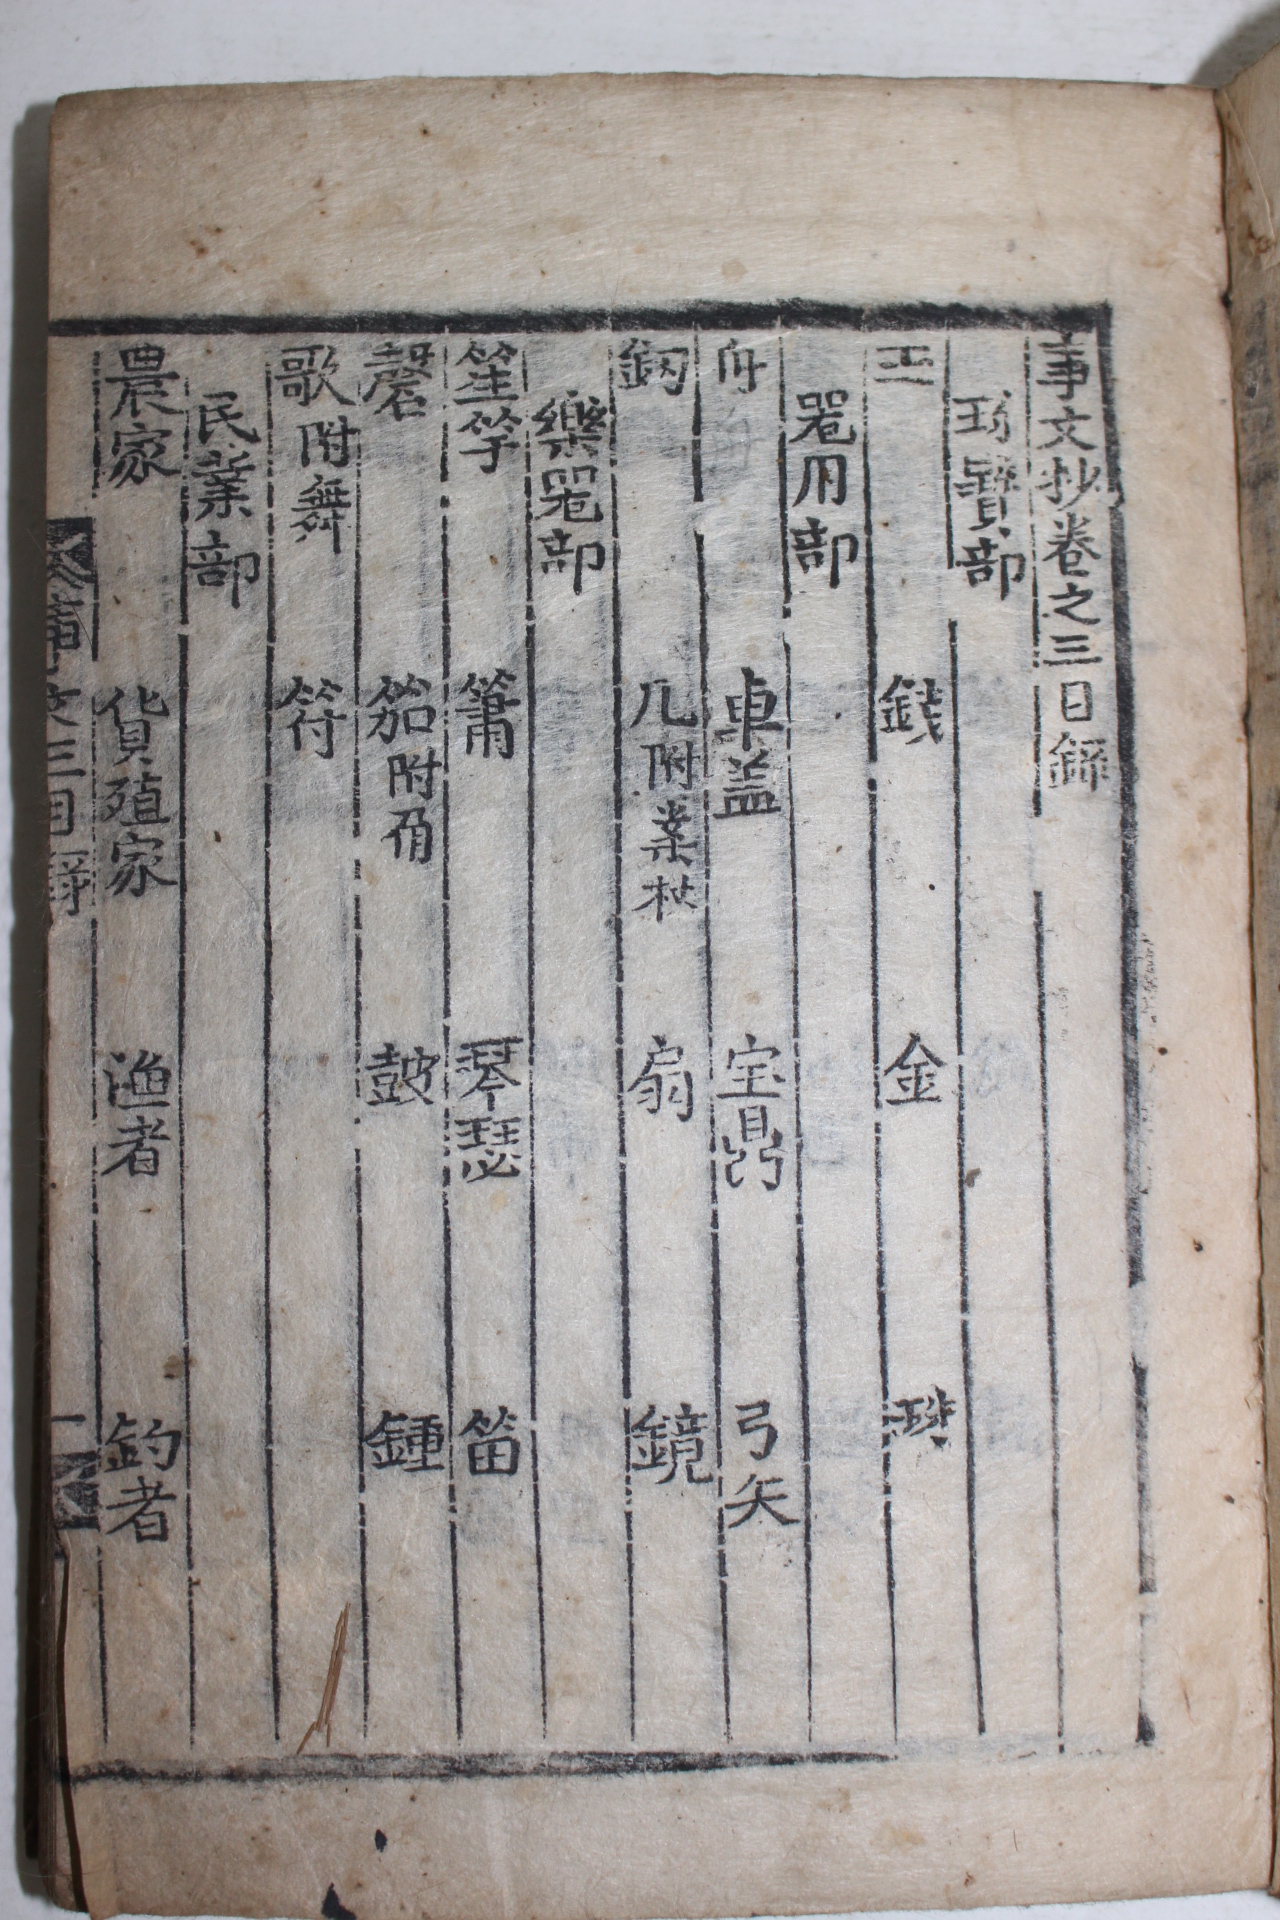 事文抄卷之三目錄
珎寶部
玉 錢 金 珠
器用部
舟 車盖 宝鼎 弓矢
釼 几附案杖 扇 鏡
樂器部
笙竽 簫 琴瑟 笛
磬 笳附角 皷 鍾
歌附舞 符
民業部
農家 貨殖家 漁者 釣者
三目錄 一